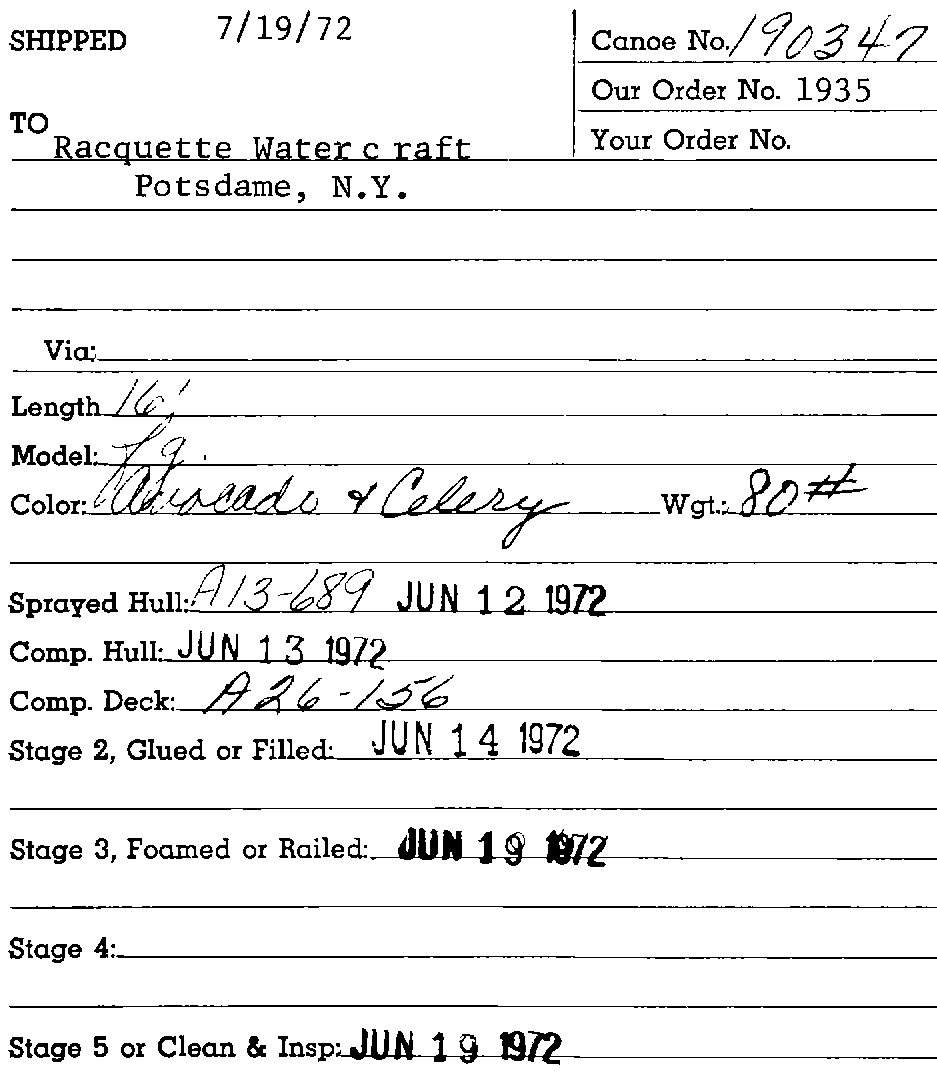 SHIPPED 7/19/72
Canoe No. 190347
Our Order No. 1935
TO
Your Order No.
Racquette Water c raft
Potsdame, N.Y.
Via:
Length 16'
Model: Fg.
Color: Avocado & Celery Wgt.: 80#
Sprayed Hull: A13-689 JUN 12 1972
Comp. Hull: JUN 13 1972
Comp. Deck: A26-156
Stage 2, Glued or Filled: JUN 14 1972
Stage 3, Foamed or Railed: JUN 19 1972
Stage 4:
Stage 5 or Clean & Insp: JUN 19 1972